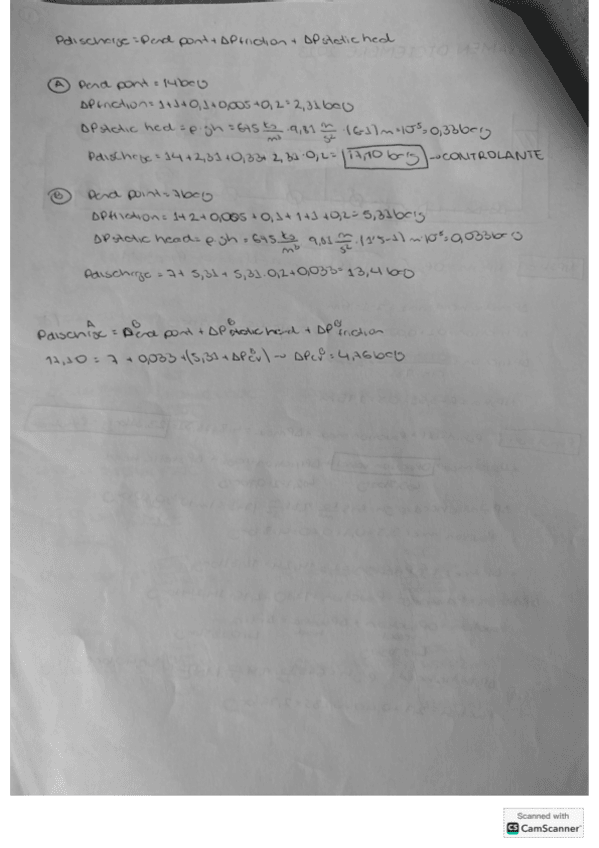 Pdischarge = Pend point + ΔPfriction + ΔPstatic hed
A Pend point = 14 barg
ΔPfriction = 1+1+0,1+0,005+0,2 = 2,31 barg
ΔPstatic hed = ρ·gh = 695 kg/m³ · 9,81 m/s² · (6-1) m · 10⁻⁵ = 0,33 barg
Pdischarge = 14 + 2,31 + 0,33 + 2,31 · 0,2 = 17,10 barg → CONTROLANTE
B Pend point = 7 barg
ΔPfriction = 1+2+0,005+0,1+1+1+0,2 = 5,31 barg
ΔPstatic head = ρ·gh = 695 kg/m³ 9,81 m/s² · m · 10⁻⁵ = 0,033 barg
Pdischarge = 7 + 5,31 + 5,31 · 0,2 + 0,033 = 13,4 barg
Pdischarge A = Pend point B + ΔPstatic head B + ΔPfriction B
17,10 = 7 + 0,033 + (5,31 + ΔPcv B) → ΔPcv B = 4,76 barg
Scanned with
CS CamScanner